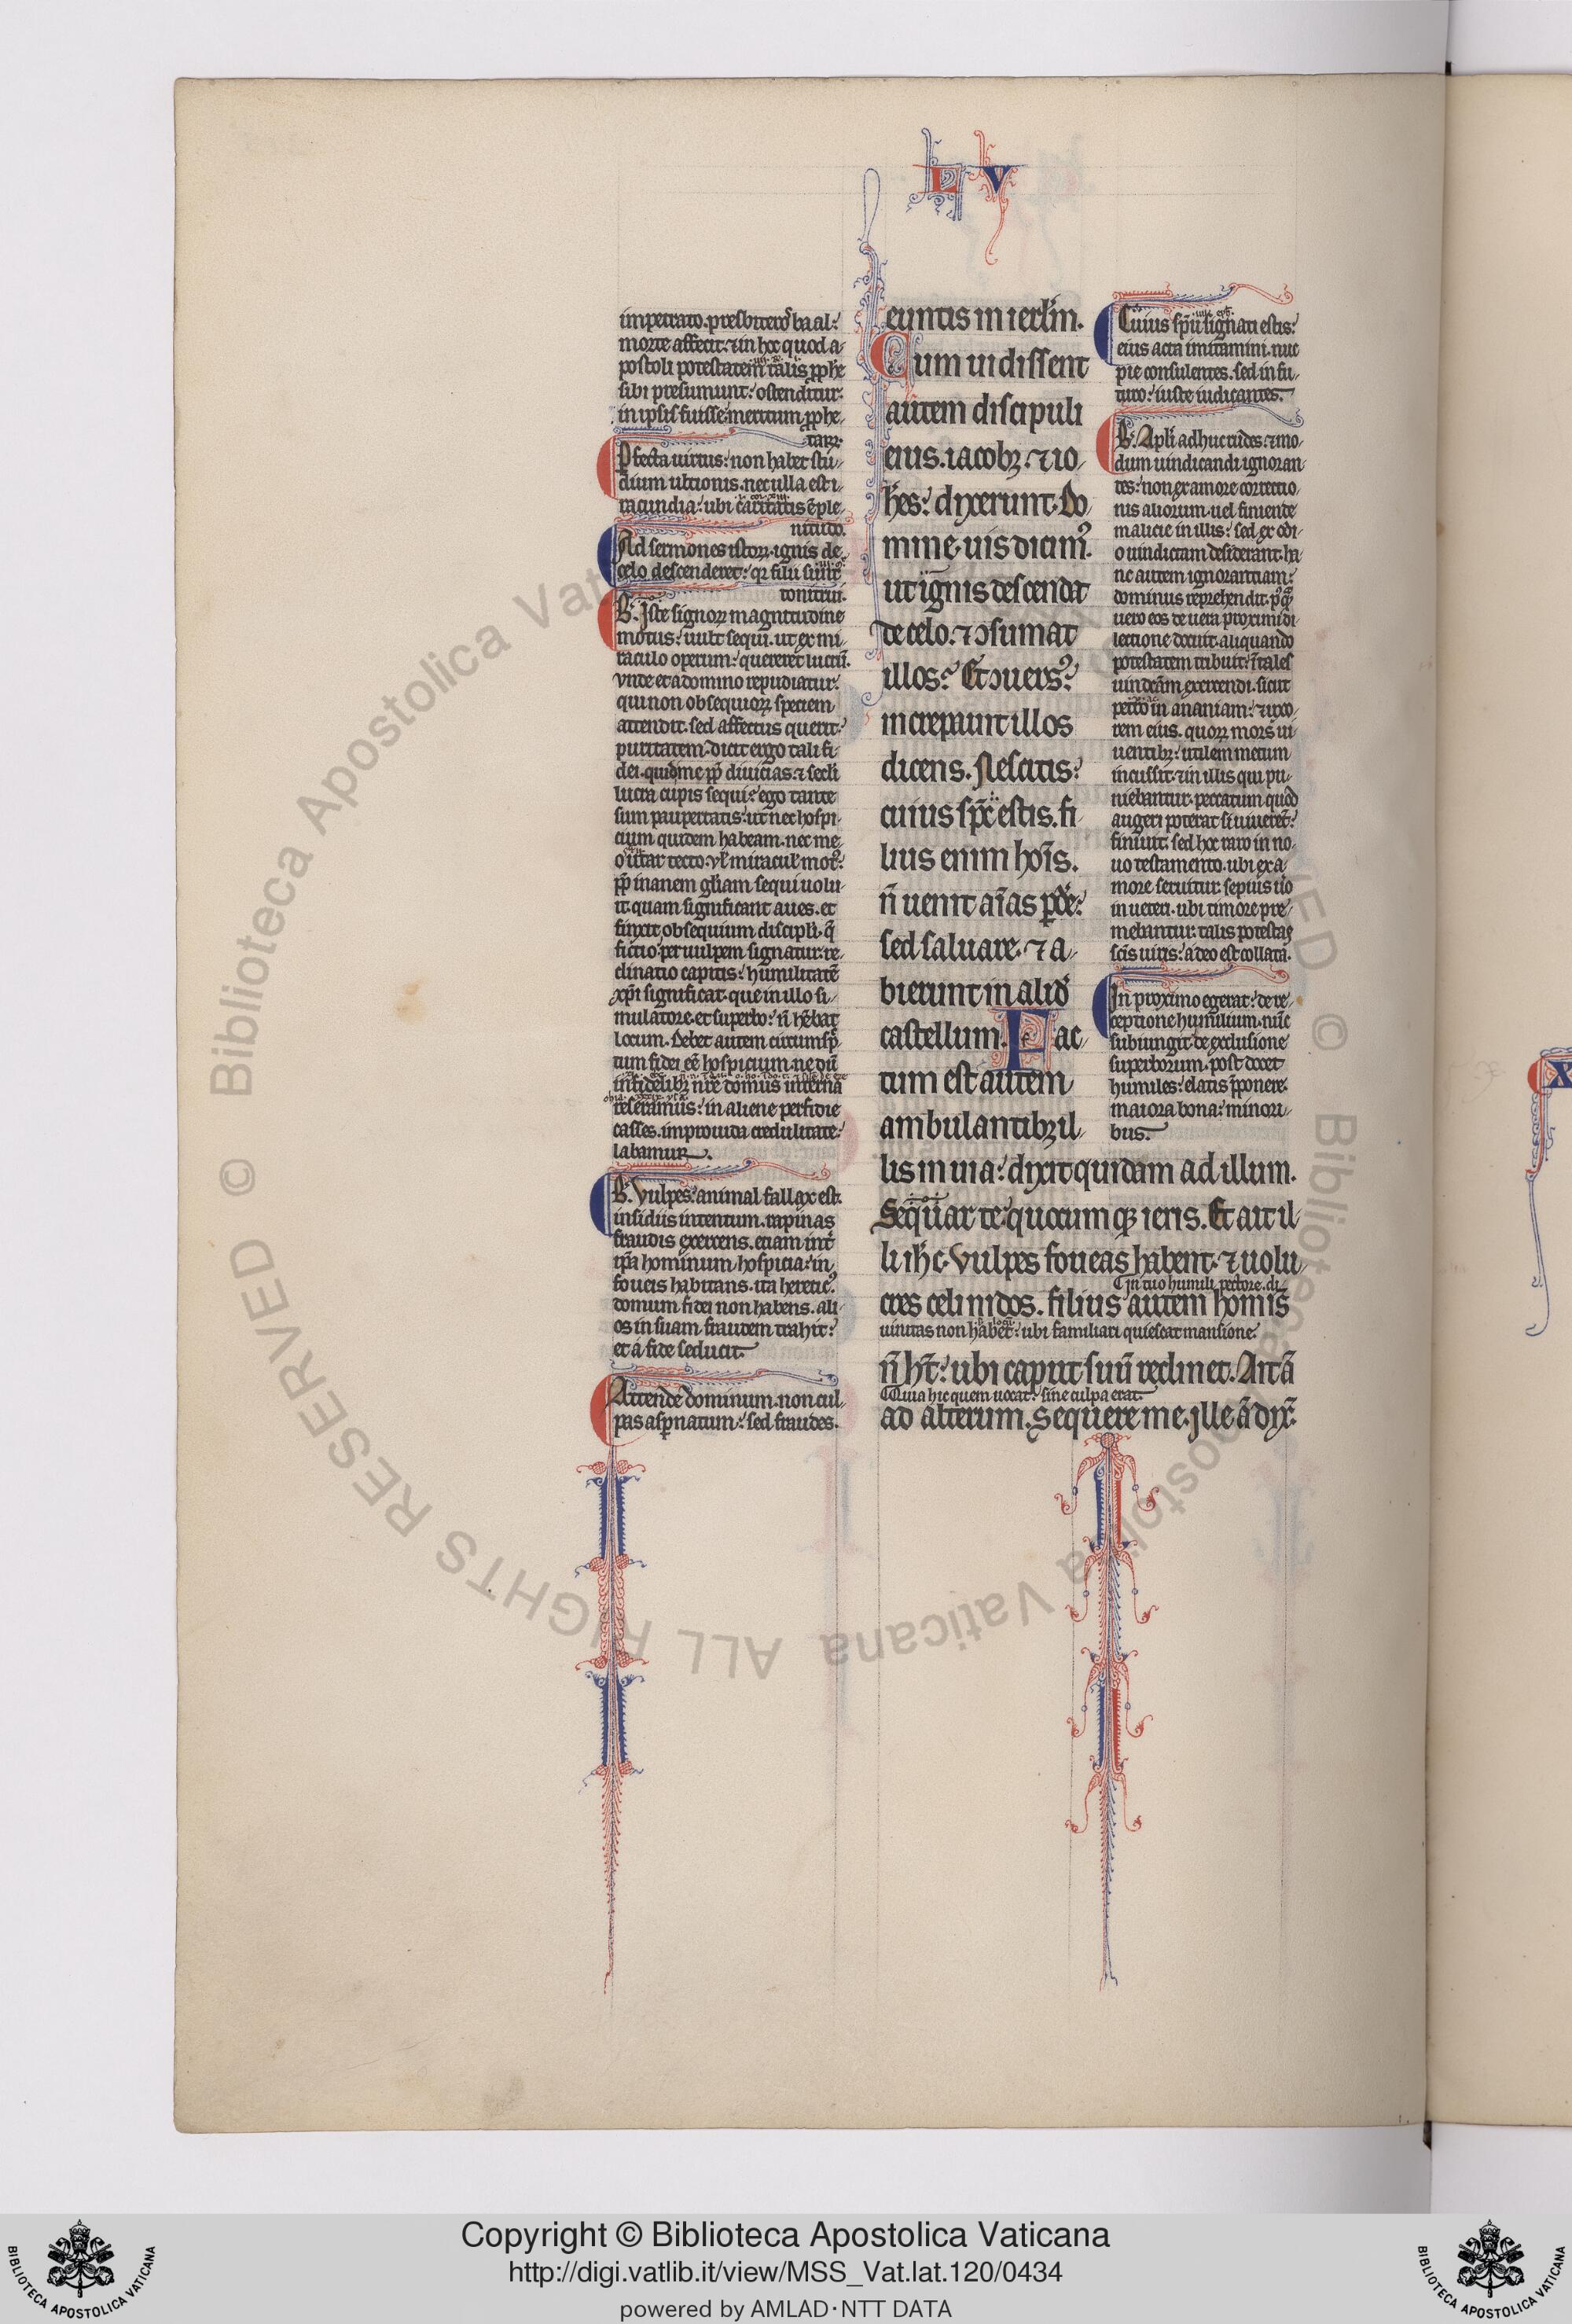 L V
impetrato. presbiteros baal:
morte affecit: ⁊ in hoc quod a-
postoli potestatem talis ꝓphe
sibi presumunt: ostenditur:
in ipsis fuisse meritum ꝓphe-
tarꝝ.
Pfecta uirtus: non habet stu-
dium ultionis. nec ulla est i-
racundia: ubi caritatis ē ple-
nitudo.
Ad sermones istorꝝ. ignis de
celo descenderet: qꝛ filii sunt
tonitrui.
B. Iste signorꝝ magnitudine
motus: uult sequi. ut ex mi-
raculo operum: quereret lucrū.
vnde et a domino repudiatur:
qui non obsequiorꝝ speciem
attendit. sed affectus querit
puritatem. dicit ergo tali fi-
dei. quid me ꝓp̄ diuicias. ⁊ secli
lucra cupis sequi: ego tante
sum paupertatis: ut nec hospi-
cium quidem habeam. nec me-
o utar tecto. vl̓ miracul̓ motꝰ:
ꝓp̄ inanem gl̓iam sequi uolu-
it. quam significant aues. et
finxit obsequium discipl̓i. q̄
fictio per uulpem signatur. re-
clinatio capitis: humilitatē
xp̄i significat. que in illo si-
mulatore. et superbo: n̄ hēbat
locum. Debet autem circumsp̄-
tum fidei eē hospicium. ne dū
infidelibꝫ nr̄e domus interna
reseramus: in aliene perfidie
casses. improuida credulitate:
labamur.
B. Vulpes: animal fallax est.
insidiis intentum. rapinas
fraudis exercens. etiam int̄
ip̄a hominum hospicia: in
foueis habitans. ita hereticꝰ.
domum fidei non habens. ali-
os in suam fraudem trahit:
et a fide seducit.
Attende dominum. non cul-
pas asp̄natum: sed fraudes.
euntis in ierl̓m.
Cum uidissent
autem discipuli
eius. iacobꝫ. ⁊ io-
h̄es: dixerunt. Do-
mine. uis dicimꝰ.
ut ignis descendat
de celo. ⁊ ↄsumat
illos: Et ↄuersꝰ:
increpauit illos
dicens. Nescitis:
cuius sp̄c estis. fi-
lius enim hoīs.
n̄ uenit aīas ꝑde:
sed saluare. ⁊ a-
bierunt in aliud
castellum. Fac-
tum est autem
ambulantibꝫ il-
lis in uia: dixit quidam ad illum.
Sequar te: quocumqꝫ ieris. Et ait il-
li ih̄c. Vulpes foueas habent. ⁊ uolu-
In tuo humili pectore. di-
cres celi nidos. filius autem hominis
uinitas non habet: ubi familiari quiescat mansione.
n̄ ht̄: ubi caput suū reclinet. Ait ā
Quia hic quem uocat: sine culpa erat.
ad alterum. Sequere me. Ille ā dix̄:
Cuius sp̄u signati estis:
eius acta imitamini. nūc
pie consulentes. sed in fu-
turo: iuste iudicantes.
B. Apl̓i adhuc rudes. ⁊ mo-
dum uindicandi ignoran-
tes: non ex amore correctio-
nis aliorum. uel finiende
malicie in illis: sed ex odi-
o uindictam desiderant. ha-
nc autem ignorantiam:
dominus reprehendit. pꝰq̄
uero eos de uera proximi di-
lectione docuit. aliquando
potestatem tribuit. in̄ tales
uindictam exercendi. sicut
petro in ananiam: ⁊ uxo-
rem eius. quorꝝ mors ui-
uentibꝫ: utilem metum
incussit. ⁊ in illis qui pu-
niebantur. peccatum quod
augeri poterat si uiuerent:
finiuit. sed hoc raro in no-
uo testamento. ubi ex a-
more seruitur. sepius uō
in ueteri. ubi timore pre-
mebantur. talis potestas
scīs uiris: a deo est collata.
In proximo egerat: de re-
ceptione humilium. nūc
subiungit de exclusione
superborum. post docet
humiles: elatis p̄ponere.
maiora bona: minori-
bus.
Copyright © Biblioteca Apostolica Vaticana
http://digi.vatlib.it/view/MSS_Vat.lat.120/0434
powered by AMLAD·NTT DATA
BIBLIOTECA APOSTOLICA VATICANA
BIBLIOTECA APOSTOLICA VATICANA
© Biblioteca Apostolica Vaticana ALL RIGHTS RESERVED